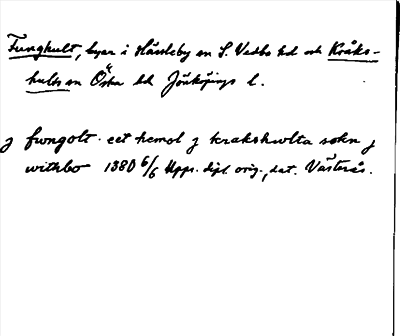 Funghult, byar i Hässleby sn S. Vedbo hd och Kråks-
hults sn Östra hd Jönköpings l.
j fwngolt eet hemol j krakshwlta sokn j
withbo 1380 6/6 Upps. dipl. orig., dat. Västerås.